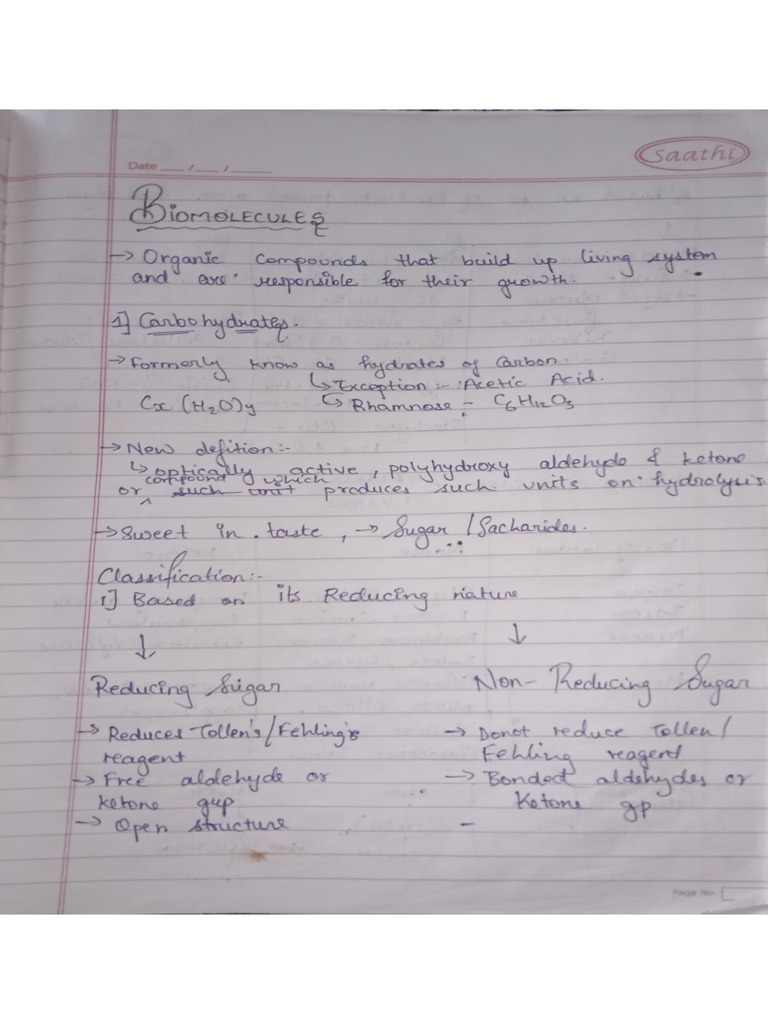 saathi
Date __/__/____
BIOMOLECULES
→ Organic compounds that build up living system
and are responsible for their growth.
1] Carbohydrates.
→ Formerly know as hydrates of Carbon.
↳ Exception :- Acetic Acid.
Cx (H2O)y ↳ Rhamnose - C6H12O5
→ New defition:-
↳ optically active, polyhydroxy aldehyde & ketone
compound which
or ^ such unit produces such units on hydrolysis.
→ Sweet in taste, → Sugar / Sacharides.
Classification:-
1] Based on its Reducing nature
↓ ↓
Reducing Sugar Non-Reducing Sugar
→ Reduces Tollen's/Fehling's → Donot reduce Tollen/
reagent Fehling reagent
→ Free aldehyde or → Bonded aldehydes or
ketone gup Ketone gp
→ Open structure -
Page No.